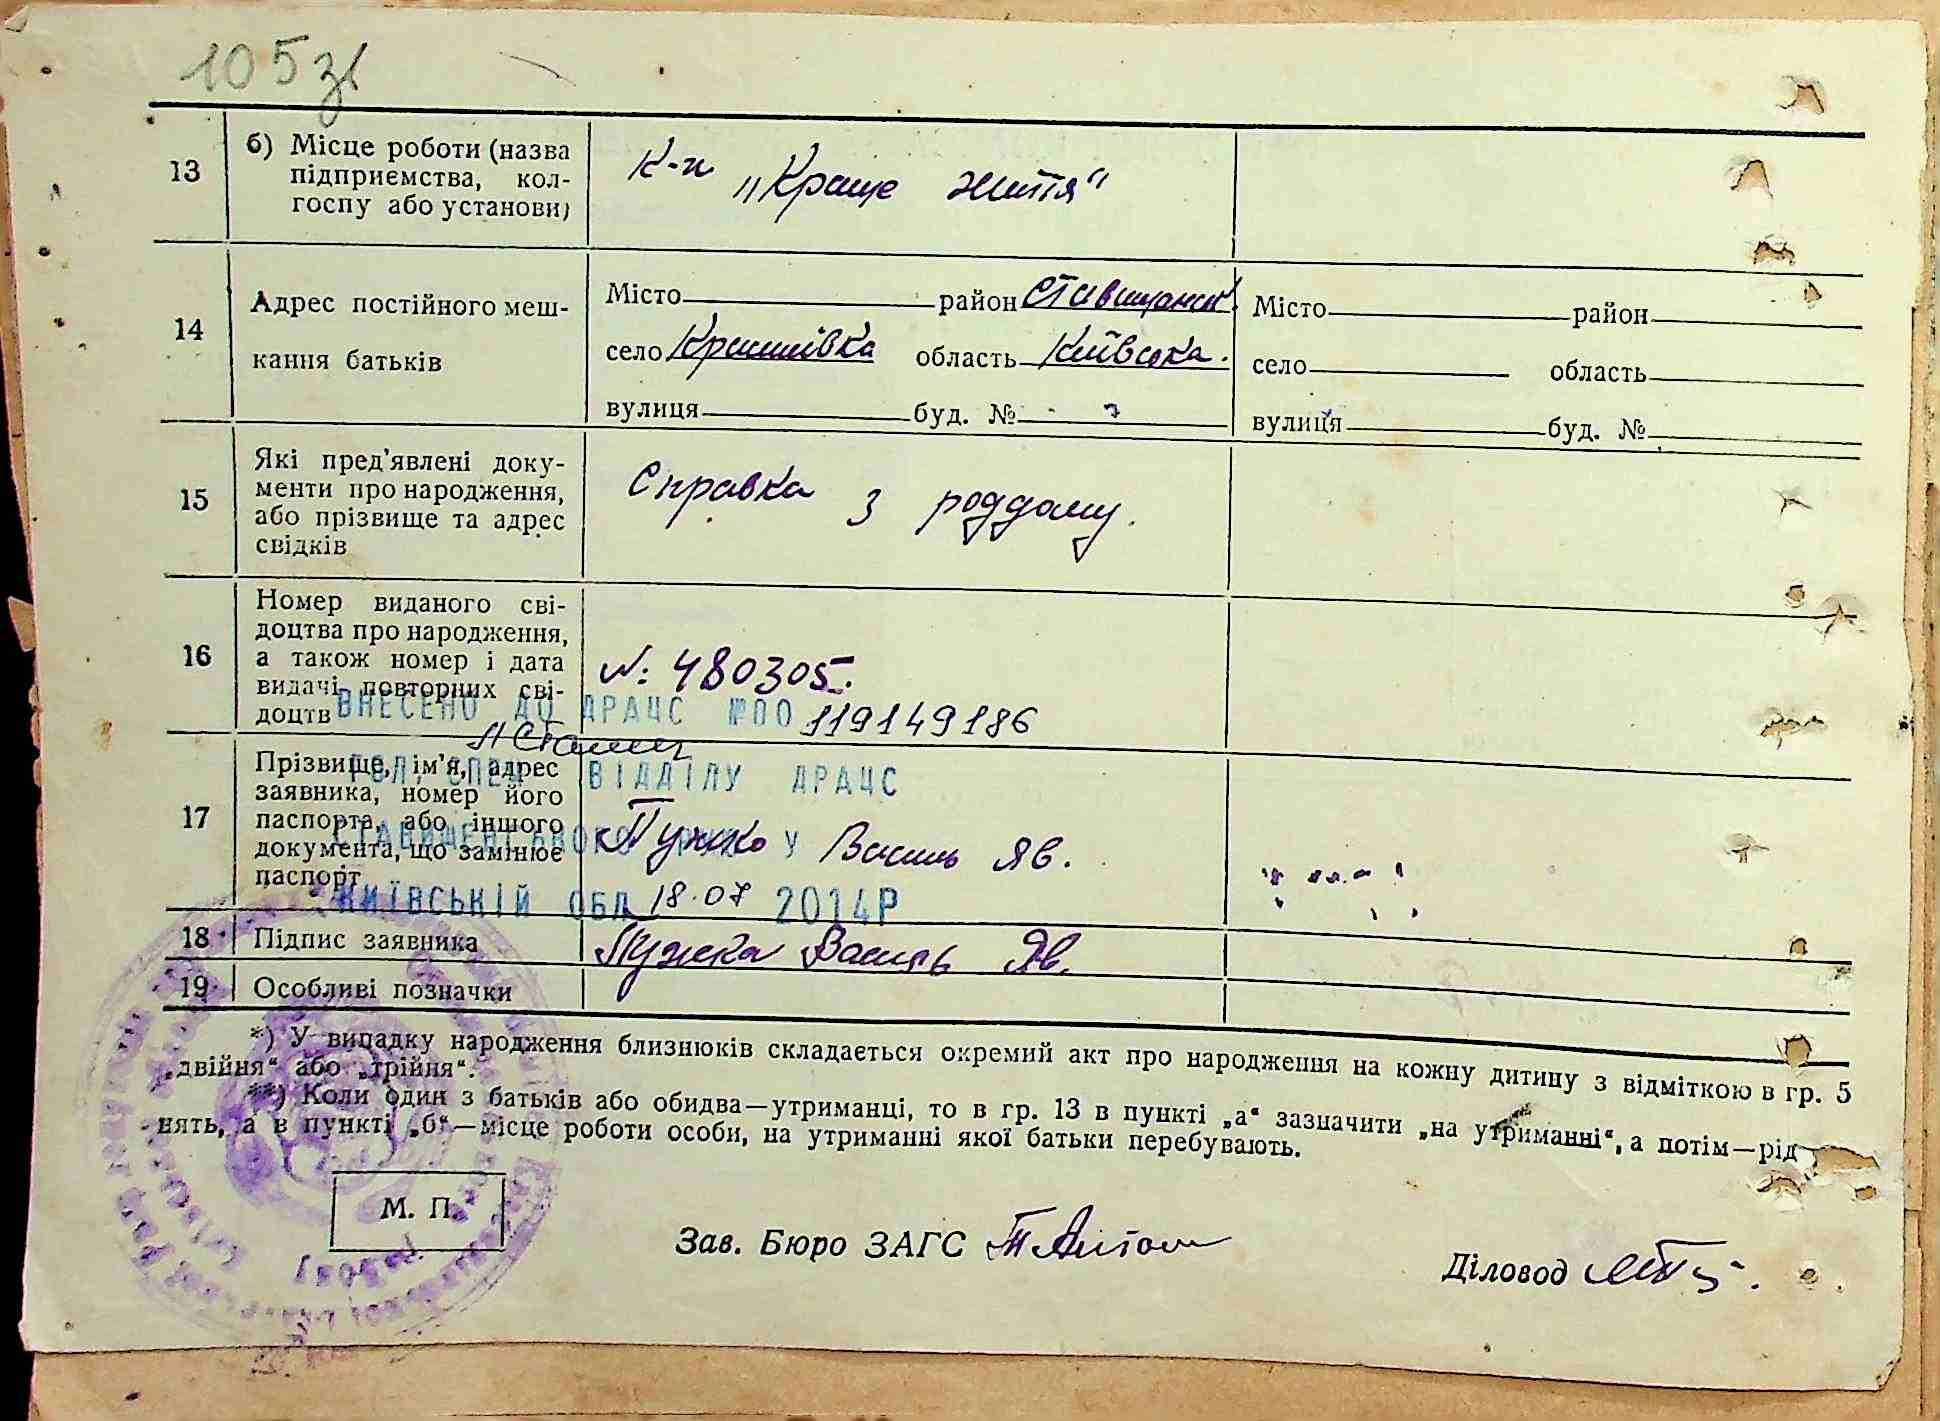 105 зв
13
б) Місце роботи (назва
підприємства, кол-
госпу або установи)
К-п „Краще життя"
14
Адрес постійного меш-
кання батьків
Місто район Ставищанськ.
село область Київська.
вулиця буд. №
Місто район
село область
вулиця буд. №
15
Які пред'явлені доку-
менти про народження,
або прізвище та адрес
свідків
Справка з роддому.
16
Номер виданого сві-
доцтва про народження,
а також номер і дата
видачі повторних сві-
доцтв
№: 480305.
ВНЕСЕНО ДО ДРАЦС №ПО 119149186
17
Прізвище, ім'я, адрес
заявника, номер його
паспорта, або іншого
документа, що замінює
паспорт
ГОЛ. СПЕЦ ВІДДІЛУ ДРАЦС
СТАВИЩЕНСЬКОГО РУЮ У
Пужко Василь Яв.
КИЇВСЬКІЙ ОБЛ 18.07 2014Р
18
Підпис заявника
Пужка Василь Яв.
19
Особливі позначки
*) У випадку народження близнюків складається окремий акт про народження на кожну дитину з відміткою в гр. 5
„двійня“ або „трійня“.
**) Коли один з батьків або обидва—утриманці, то в гр. 13 в пункті „а“ зазначити „на утриманні“, а потім—рід
нять, а в пункті „б“—місце роботи особи, на утриманні якої батьки перебувають.
М. П.
Зав. Бюро ЗАГС
Діловод